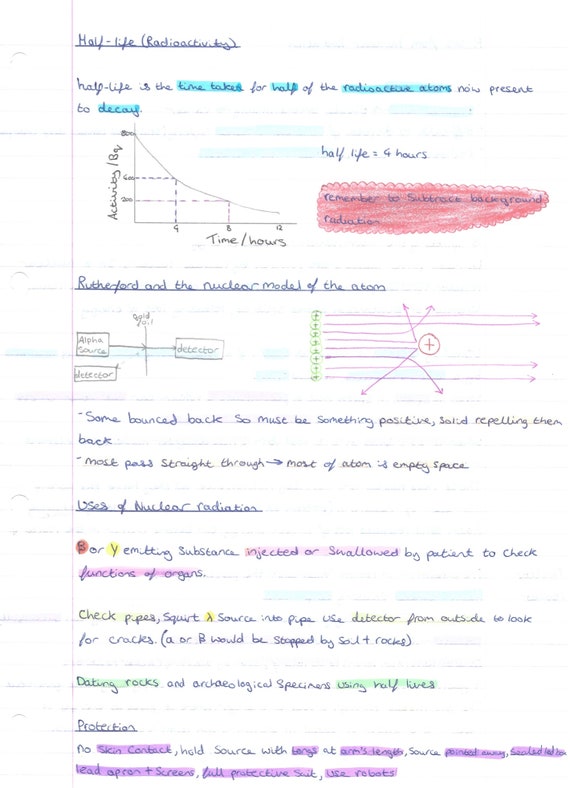 Half-life (Radioactivity)
half-life is the time taken for half of the radioactive atoms now present
to decay.
800
400
200
Activity/Bq
4
8
12
Time/hours
half life = 4 hours
remember to subtract background
radiation
Rutherford and the nuclear model of the atom
gold
foil
Alpha
Source
detector
detector
+
+
+
+
+
+
+
+
+
-Some bounced back so must be something positive, solid repelling them
back
-most pass straight through→most of atom is empty space
Uses of Nuclear radiation
β or γ emitting substance injected or swallowed by patient to check
functions of organs.
Check pipes, squirt λ source into pipe use detector from outside to look
for cracks. (α or β would be stopped by soil + rocks)
Dating rocks and archaeological specimens using half lives
Protection
no skin contact, hold source with tongs at arm's length, source pointed away,
lead apron + screens, full protective suit, use robots